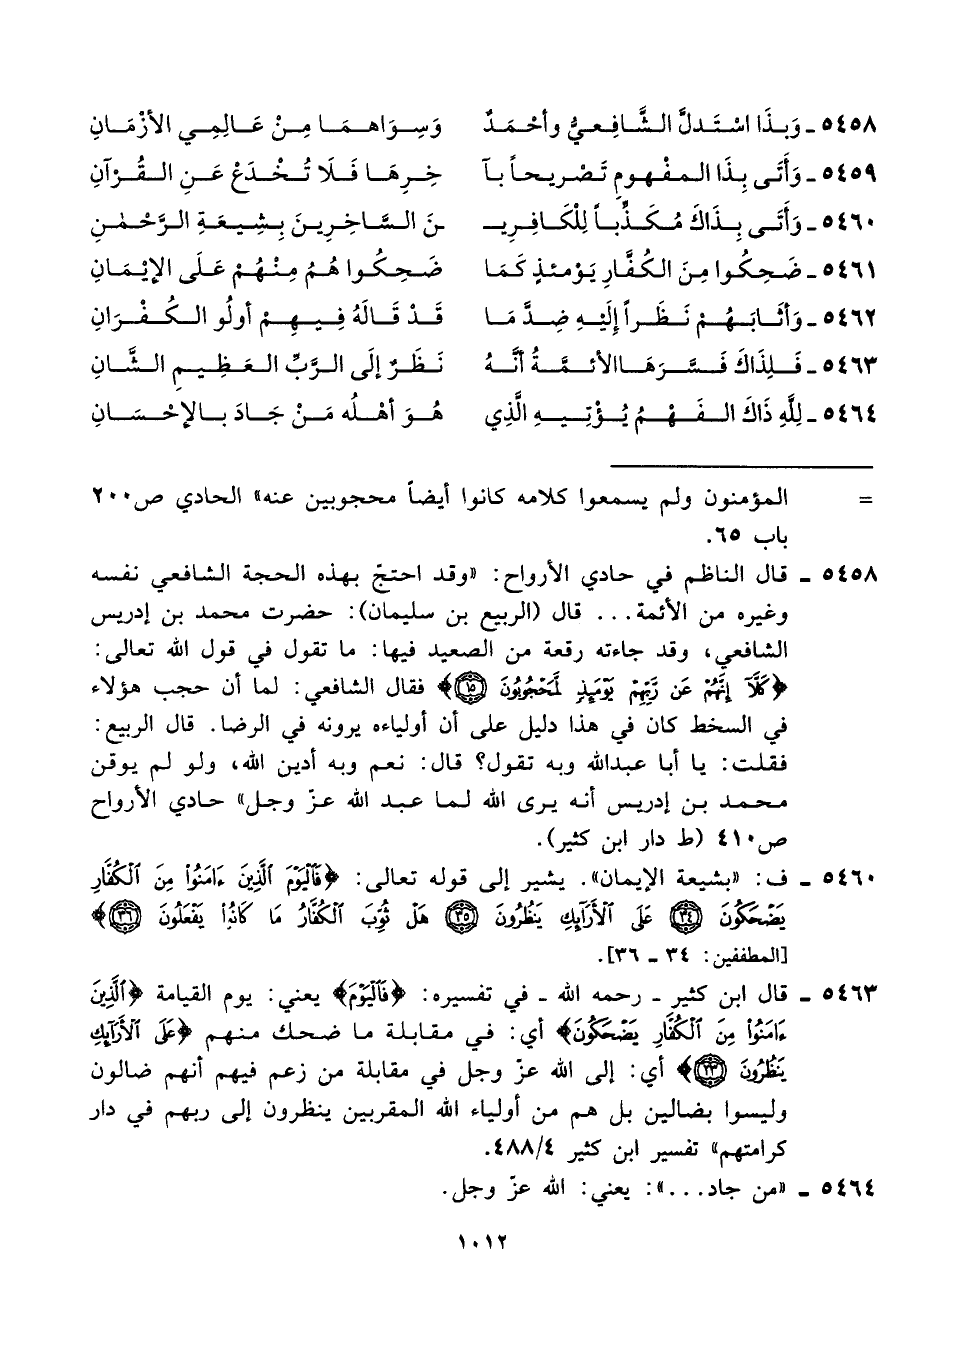 ٥٤٥٨ ـ وَبِذَا اسْتَدَلَّ الشَّافِعِيُّ وأحْمَدٌ وَسِوَاهمَا مِنْ عَالِمِي الأزْمَانِ
٥٤٥٩ ـ وَأَتَى بِذَا المفْهومِ تَصْرِيحاً بآ خِرِهَا فَلَا تُخْدَعْ عَنِ القُرْآنِ
٥٤٦٠ ـ وَأَتَى بِذَاكَ مُكَذِّباً لِلْكَافِرِيـ ـنَ السَّاخِرِينَ بِشِيعَةِ الرَّحْمٰنِ
٥٤٦١ ـ ضَحِكُوا مِنَ الكُفَّارِ يَوْمئذٍ كَمَا ضَحِكُوا هُمُ مِنْهُمْ عَلَى الإيْمَانِ
٥٤٦٢ ـ وَأثَابَهُمْ نَظَراً إلَيْهِ ضِدَّ مَا قَدْ قَالَهُ فِيهِمْ أولُو الكُفْرَانِ
٥٤٦٣ ـ فَلِذَاكَ فَسَّرَهَا الأئمَّةُ أنَّهُ نَظَرٌ إلَى الرَّبِّ العَظِيمِ الشَّانِ
٥٤٦٤ ـ لِلَّهِ ذَاكَ الفَهْمُ يُؤْتِيهِ الَّذِي هُوَ أهْلُه مَنْ جَادَ بالإحْسَانِ
= المؤمنون ولم يسمعوا كلامه كانوا أيضاً محجوبين عنه» الحادي ص٢٠٠
باب ٦٥.
٥٤٥٨ ـ قال الناظم في حادي الأرواح: «وقد احتجّ بهذه الحجة الشافعي نفسه
وغيره من الأئمة... قال (الربيع بن سليمان): حضرت محمد بن إدريس
الشافعي، وقد جاءته رقعة من الصعيد فيها: ما تقول في قول الله تعالى:
﴿كَلَّآ إِنَّهُمْ عَن رَّبِّهِمْ يَوْمَئِذٍ لَّمَحْجُوبُونَ ١٥﴾ فقال الشافعي: لما أن حجب هؤلاء
في السخط كان في هذا دليل على أن أولياءه يرونه في الرضا. قال الربيع:
فقلت: يا أبا عبدالله وبه تقول؟ قال: نعم وبه أدين الله، ولو لم يوقن
محمد بن إدريس أنه يرى الله لما عبد الله عزّ وجل» حادي الأرواح
ص٤١٠ (ط دار ابن كثير).
٥٤٦٠ ـ ف: «بشيعة الإيمان». يشير إلى قوله تعالى: ﴿فَٱلْيَوْمَ ٱلَّذِينَ ءَامَنُوا۟ مِنَ ٱلْكُفَّارِ
يَضْحَكُونَ ٣٤ عَلَى ٱلْأَرَآئِكِ يَنظُرُونَ ٣٥ هَلْ ثُوِّبَ ٱلْكُفَّارُ مَا كَانُوا۟ يَفْعَلُونَ ٣٦﴾
[المطففين: ٣٤ ـ ٣٦].
٥٤٦٣ ـ قال ابن كثير ـ رحمه الله ـ في تفسيره: ﴿فَٱلْيَوْمَ﴾ يعني: يوم القيامة ﴿ٱلَّذِينَ
ءَامَنُوا۟ مِنَ ٱلْكُفَّارِ يَضْحَكُونَ﴾ أي: في مقابلة ما ضحك منهم ﴿عَلَى ٱلْأَرَآئِكِ
يَنظُرُونَ ٢٣﴾ أي: إلى الله عزّ وجل في مقابلة من زعم فيهم أنهم ضالون
وليسوا بضالين بل هم من أولياء الله المقربين ينظرون إلى ربهم في دار
كرامتهم» تفسير ابن كثير ٤٨٨/٤.
٥٤٦٤ ـ «من جاد...»: يعني: الله عزّ وجل.
١٠١٢